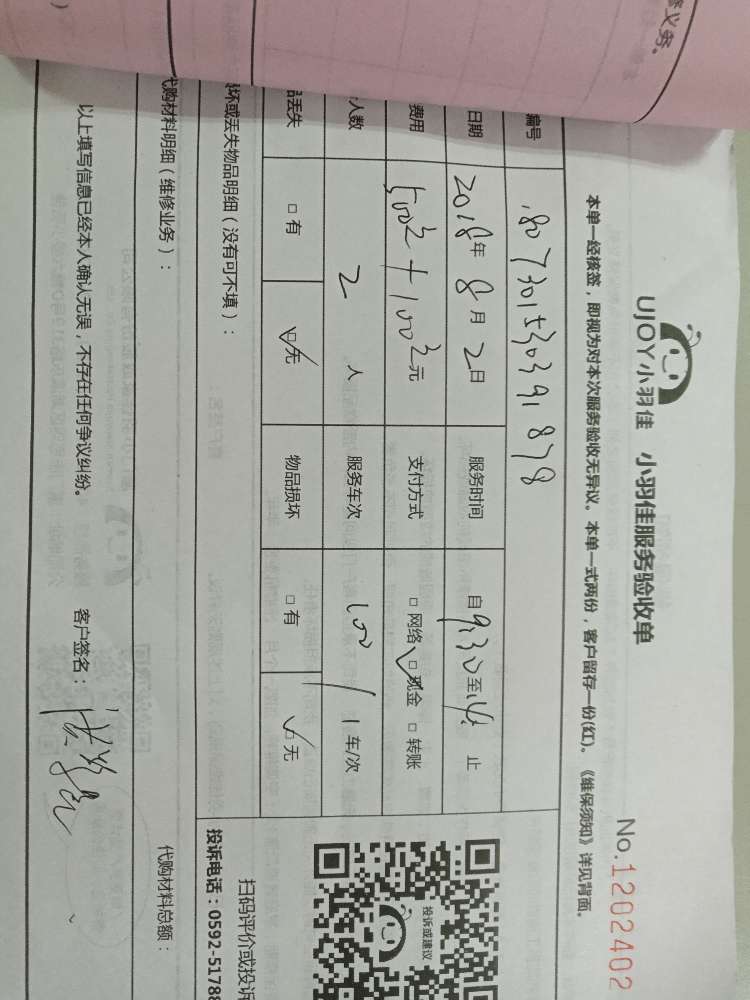 修义务。
UJOY小羽佳 小羽佳服务验收单
No.1202402
本单一经核签，即视为对本次服务验收无异议。本单一式两份，客户留存一份(红)。《维保须知》详见背面。
编号 1807301530391878
日期 2018年8月2日 服务时间 自9:30至14: 止
费用 500元+100元元 支付方式 □网络 ☑现金 □转账
人数 2 人 服务车次 100/1车/次
品丢失 □有 ☑无 物品损坏 □有 ☑无
损坏或丢失物品明细（没有可不填）：
投诉或建议
扫码评价或投诉
投诉电话：0592-51788
代购材料明细（维修业务）： 代购材料总额：
以上填写信息已经本人确认无误，不存在任何争议纠纷。 客户签名：